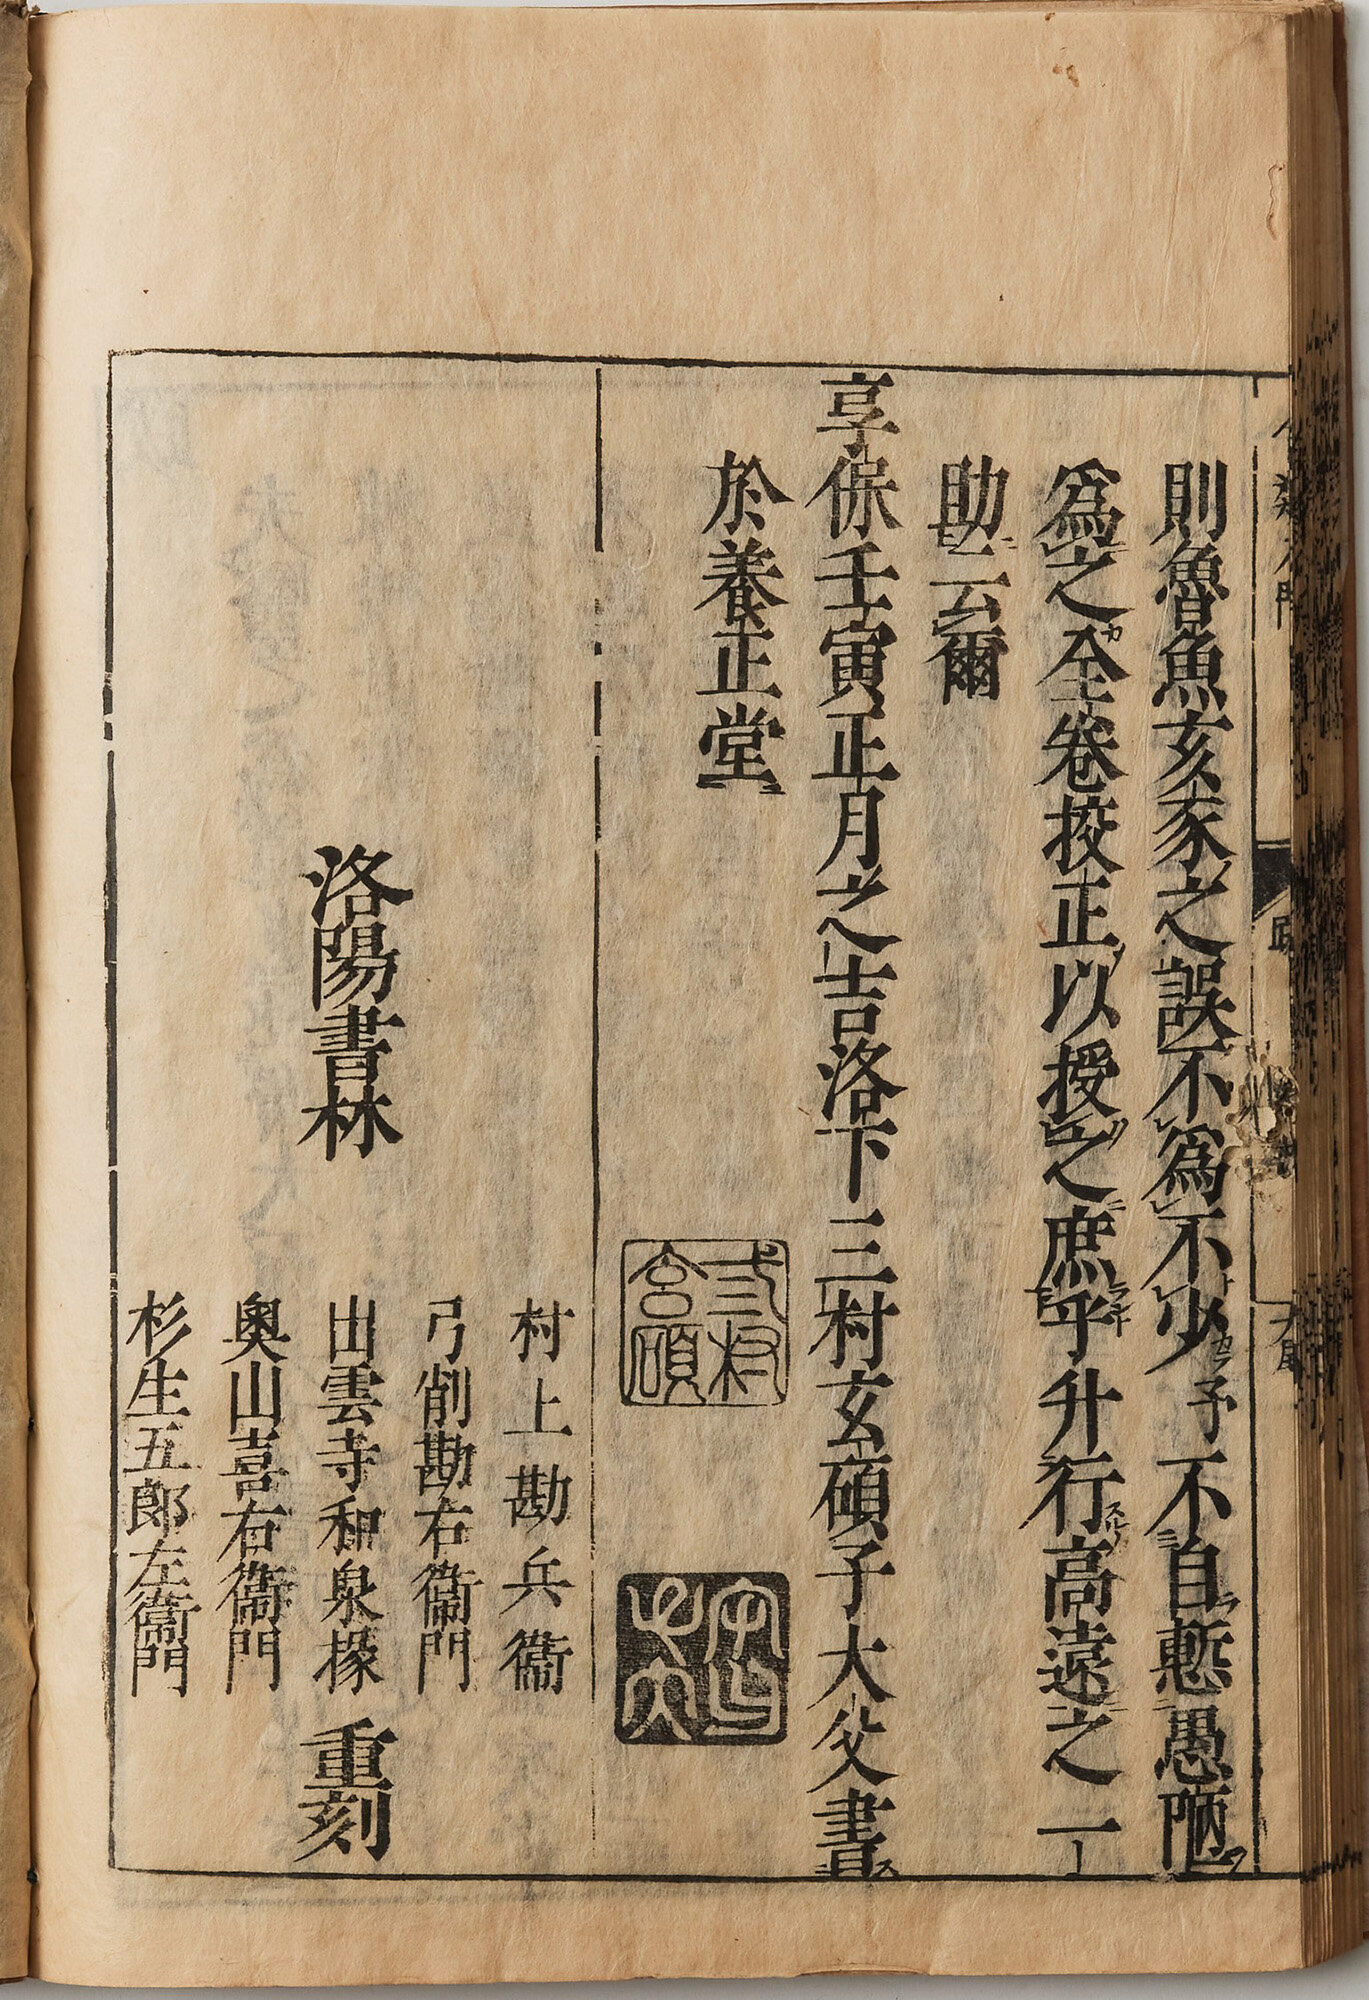 則魯魚亥豕之誤不爲不少予不自慙愚陋
爲之全卷挍正以授之庶乎升行高遠之一
助云爾
享保壬寅正月之吉洛下三村玄碩子大父書
於養正堂
弎村玄碩
洛陽書林
村上勘兵衞
弓削勘右衞門
出雲寺和泉掾
奥山喜右衞門
杉生五郎左衞門
重刻